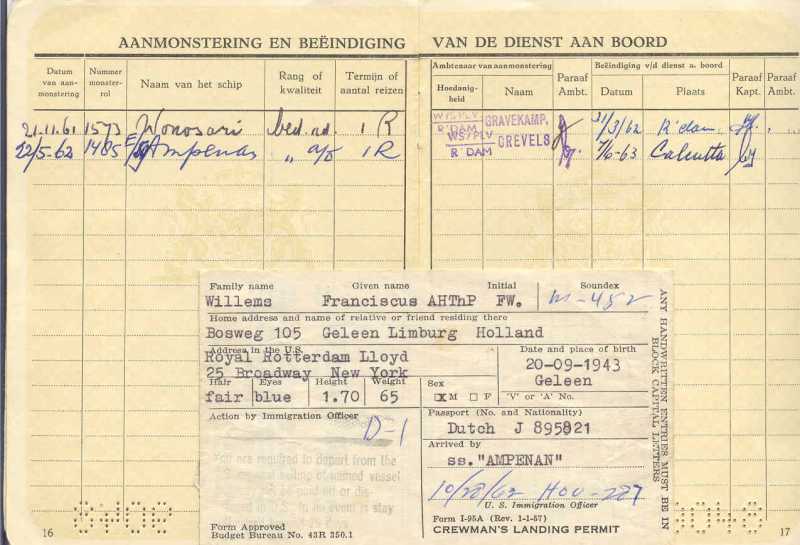 AANMONSTERING EN BEËINDIGING VAN DE DIENST AAN BOORD
Datum van aan-monstering
Nummer monster-rol
Naam van het schip
Rang of kwaliteit
Termijn of aantal reizen
Ambtenaar van aanmonstering
Hoedanig-heid
Naam
Paraaf Ambt.
Beëindiging v/d dienst a. boord
Datum
Plaats
Paraaf Kapt.
Paraaf Ambt.
21.11.61 1573 Wonosari bed. nd. 1 R
WS/PLV R'DAM GRAVEKAMP. 31/3/62 R'dam
22/5-62 1485 Ampenan " a/s 1 R
WS/PLV R'DAM GREVELS 7/6-63 Calcutta
Family name Given name Initial Soundex
Willems Franciscus AHThP FW. W-452
Home address and name of relative or friend residing there
Bosweg 105 Geleen Limburg Holland
Address in the U.S.
Royal Rotterdam Lloyd
25 Broadway New York
Date and place of birth
20-09-1943
Geleen
Hair Eyes Height Weight
fair blue 1.70 65
Sex
X M F 'V' or 'A' No.
Action by Immigration Officer
D-1
You are required to depart from the
Passport (No. and Nationality)
Dutch J 895821
Arrived by
ss."AMPENAN"
10/28/62 HOU-227
U. S. Immigration Officer
Form I-95A (Rev. 1-1-57)
CREWMAN'S LANDING PERMIT
Form Approved
Budget Bureau No. 43R 350.1
ANY HANDWRITTEN ENTRIES MUST BE IN
BLOCK CAPITAL LETTERS
16
17